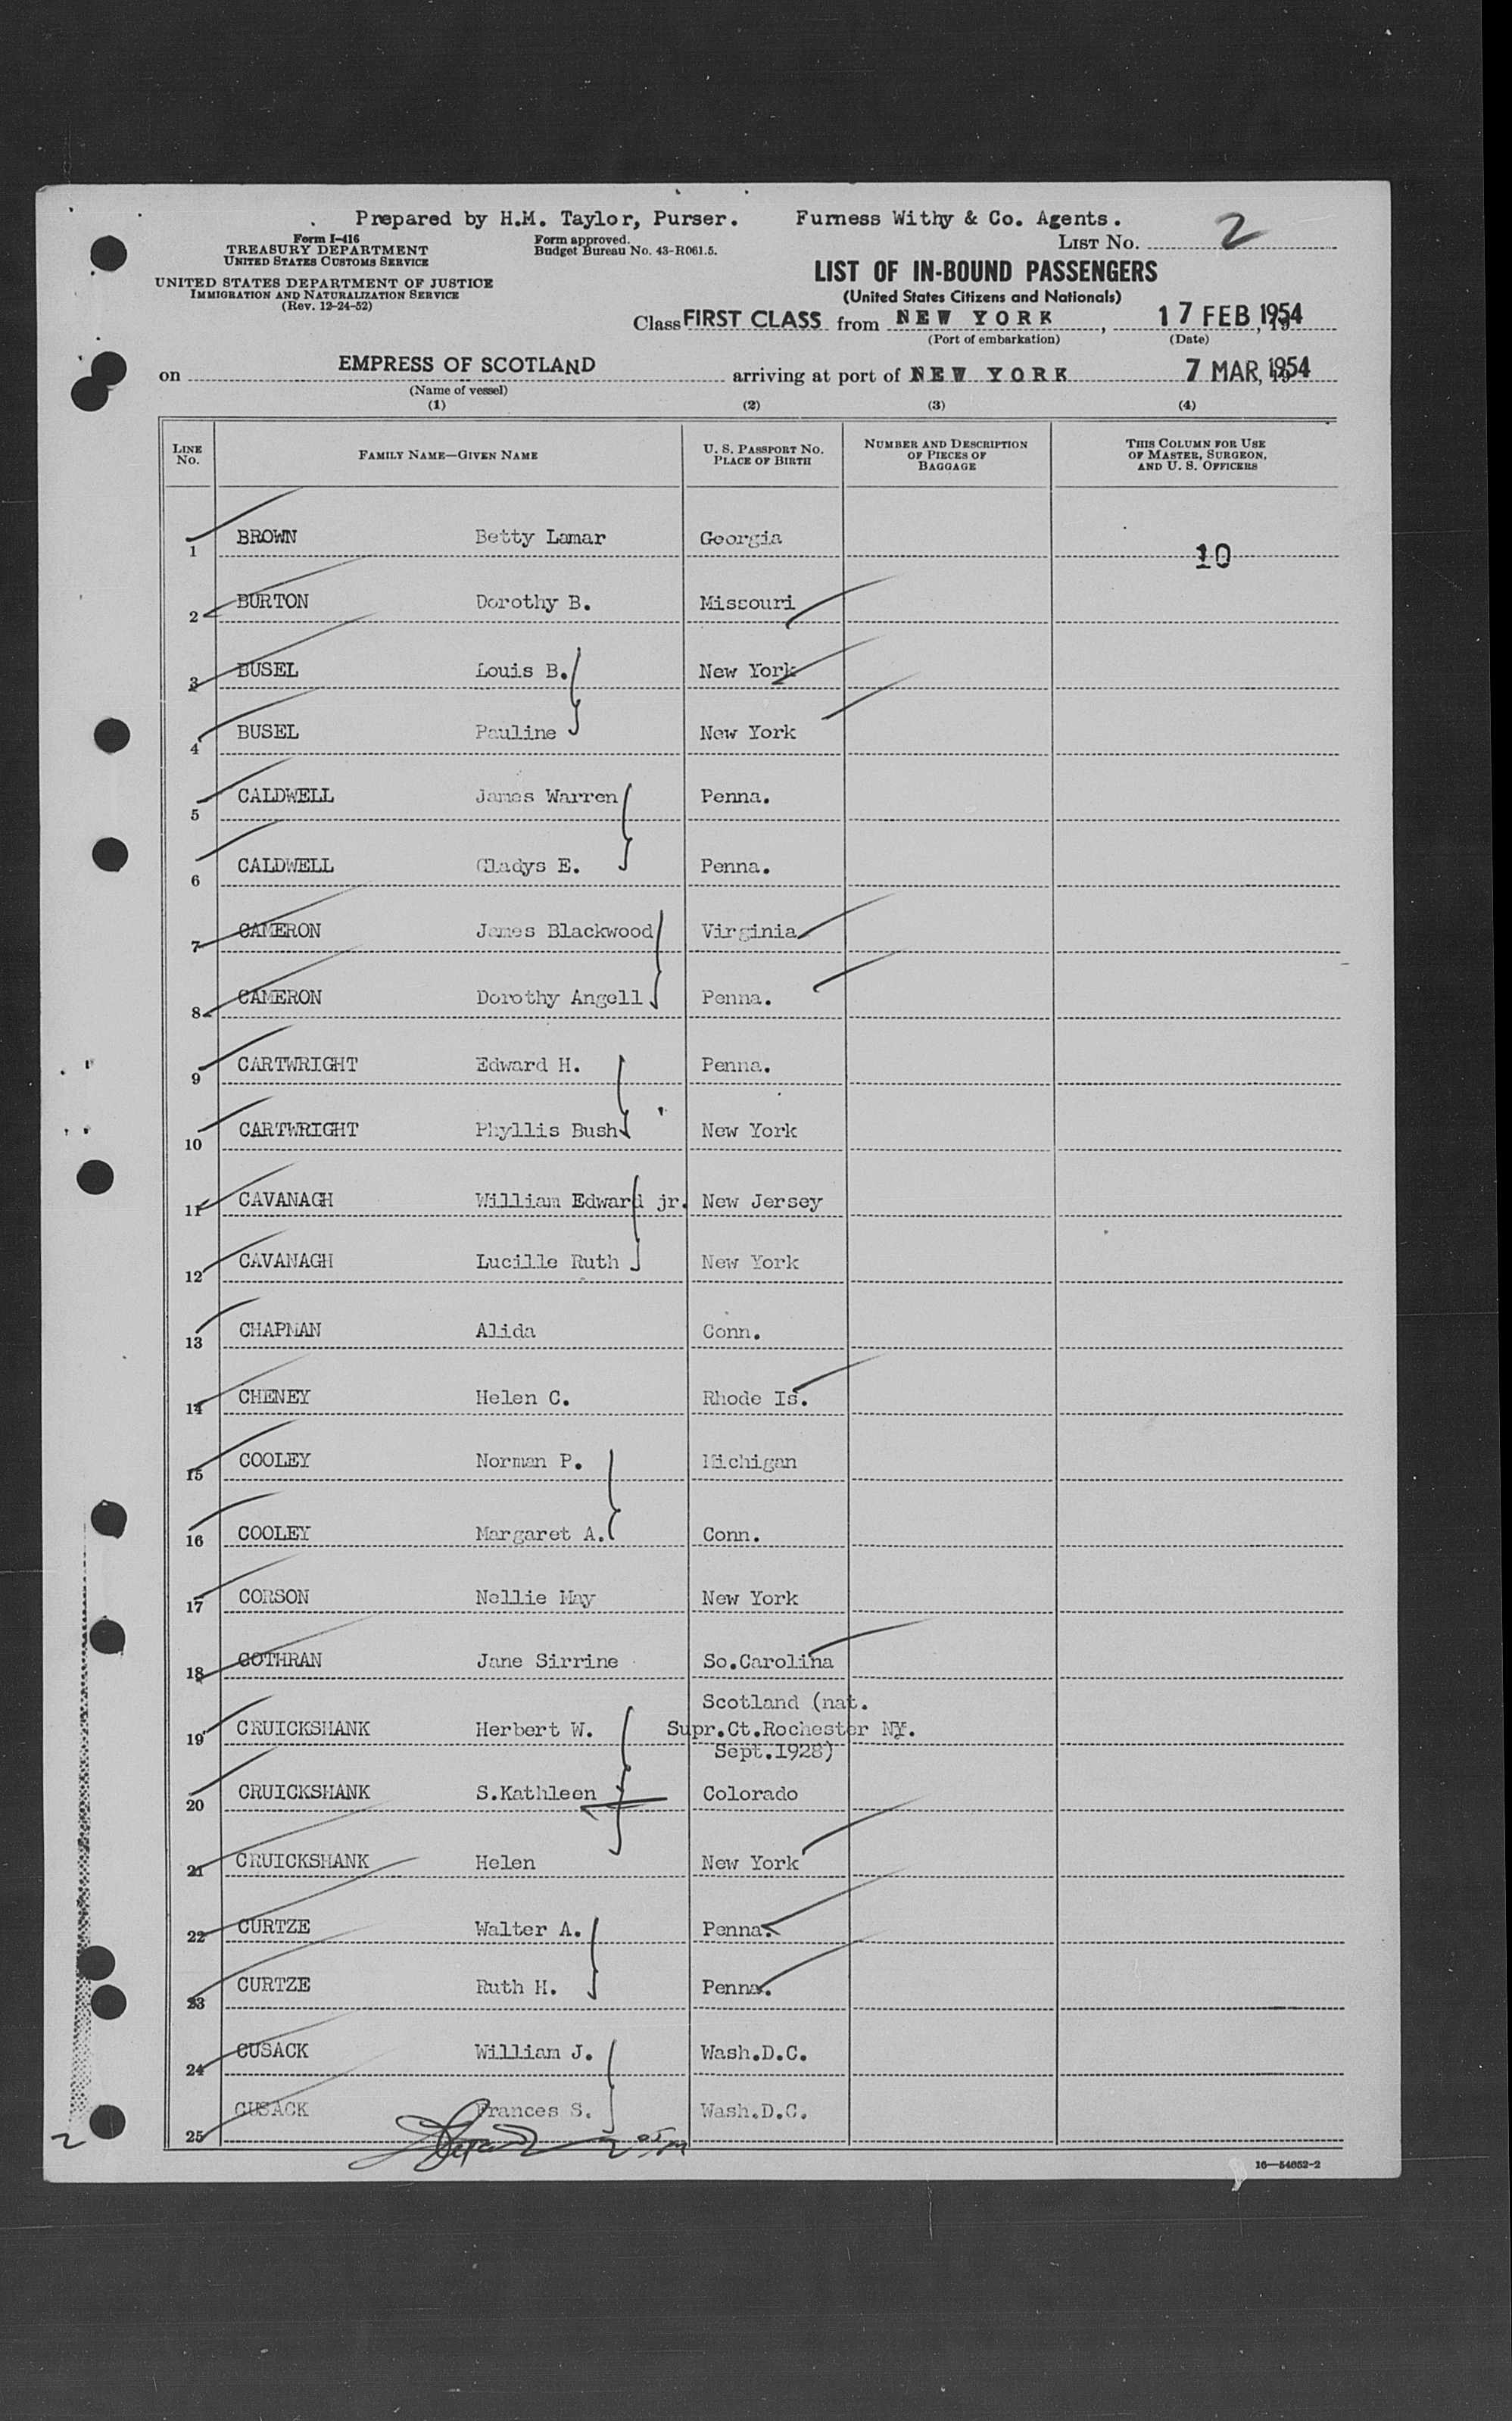 Prepared by H.M. Taylor, Purser. Furness Withy & Co. Agents.
Form I-416
TREASURY DEPARTMENT
UNITED STATES CUSTOMS SERVICE
Form approved.
Budget Bureau No. 43-R061.5.
LIST NO. 2
UNITED STATES DEPARTMENT OF JUSTICE
IMMIGRATION AND NATURALIZATION SERVICE
(Rev. 12-24-52)
LIST OF IN-BOUND PASSENGERS
(United States Citizens and Nationals)
Class FIRST CLASS from NEW YORK, 17 FEB 1954
(Port of embarkation) (Date)
on EMPRESS OF SCOTLAND arriving at port of NEW YORK 7 MAR, 1954
(Name of vessel)
(1) (2) (3) (4)
LINE NO. FAMILY NAME—GIVEN NAME U. S. PASSPORT NO. PLACE OF BIRTH NUMBER AND DESCRIPTION OF PIECES OF BAGGAGE THIS COLUMN FOR USE OF MASTER, SURGEON, AND U. S. OFFICERS
1 BROWN Betty Lamar Georgia 10
2 BURTON Dorothy B. Missouri
3 BUSEL Louis B. New York
4 BUSEL Pauline New York
5 CALDWELL James Warren Penna.
6 CALDWELL Gladys E. Penna.
7 CAMERON James Blackwood Virginia
8 CAMERON Dorothy Angell Penna.
9 CARTWRIGHT Edward H. Penna.
10 CARTWRIGHT Phyllis Bush New York
11 CAVANAGH William Edward jr. New Jersey
12 CAVANAGH Lucille Ruth New York
13 CHAPMAN Alida Conn.
14 CHENEY Helen C. Rhode Is.
15 COOLEY Norman P. Michigan
16 COOLEY Margaret A. Conn.
17 CORSON Nellie May New York
18 COTHRAN Jane Sirrine So.Carolina
19 CRUICKSHANK Herbert W. Scotland (nat.
Supr.Ct.Rochester NY.
Sept.1928)
20 CRUICKSHANK S.Kathleen Colorado
21 CRUICKSHANK Helen New York
22 CURTZE Walter A. Penna.
23 CURTZE Ruth H. Penna.
24 CUSACK William J. Wash.D.C.
25 CUSACK Frances S. Wash.D.C.
2
16—54652-2